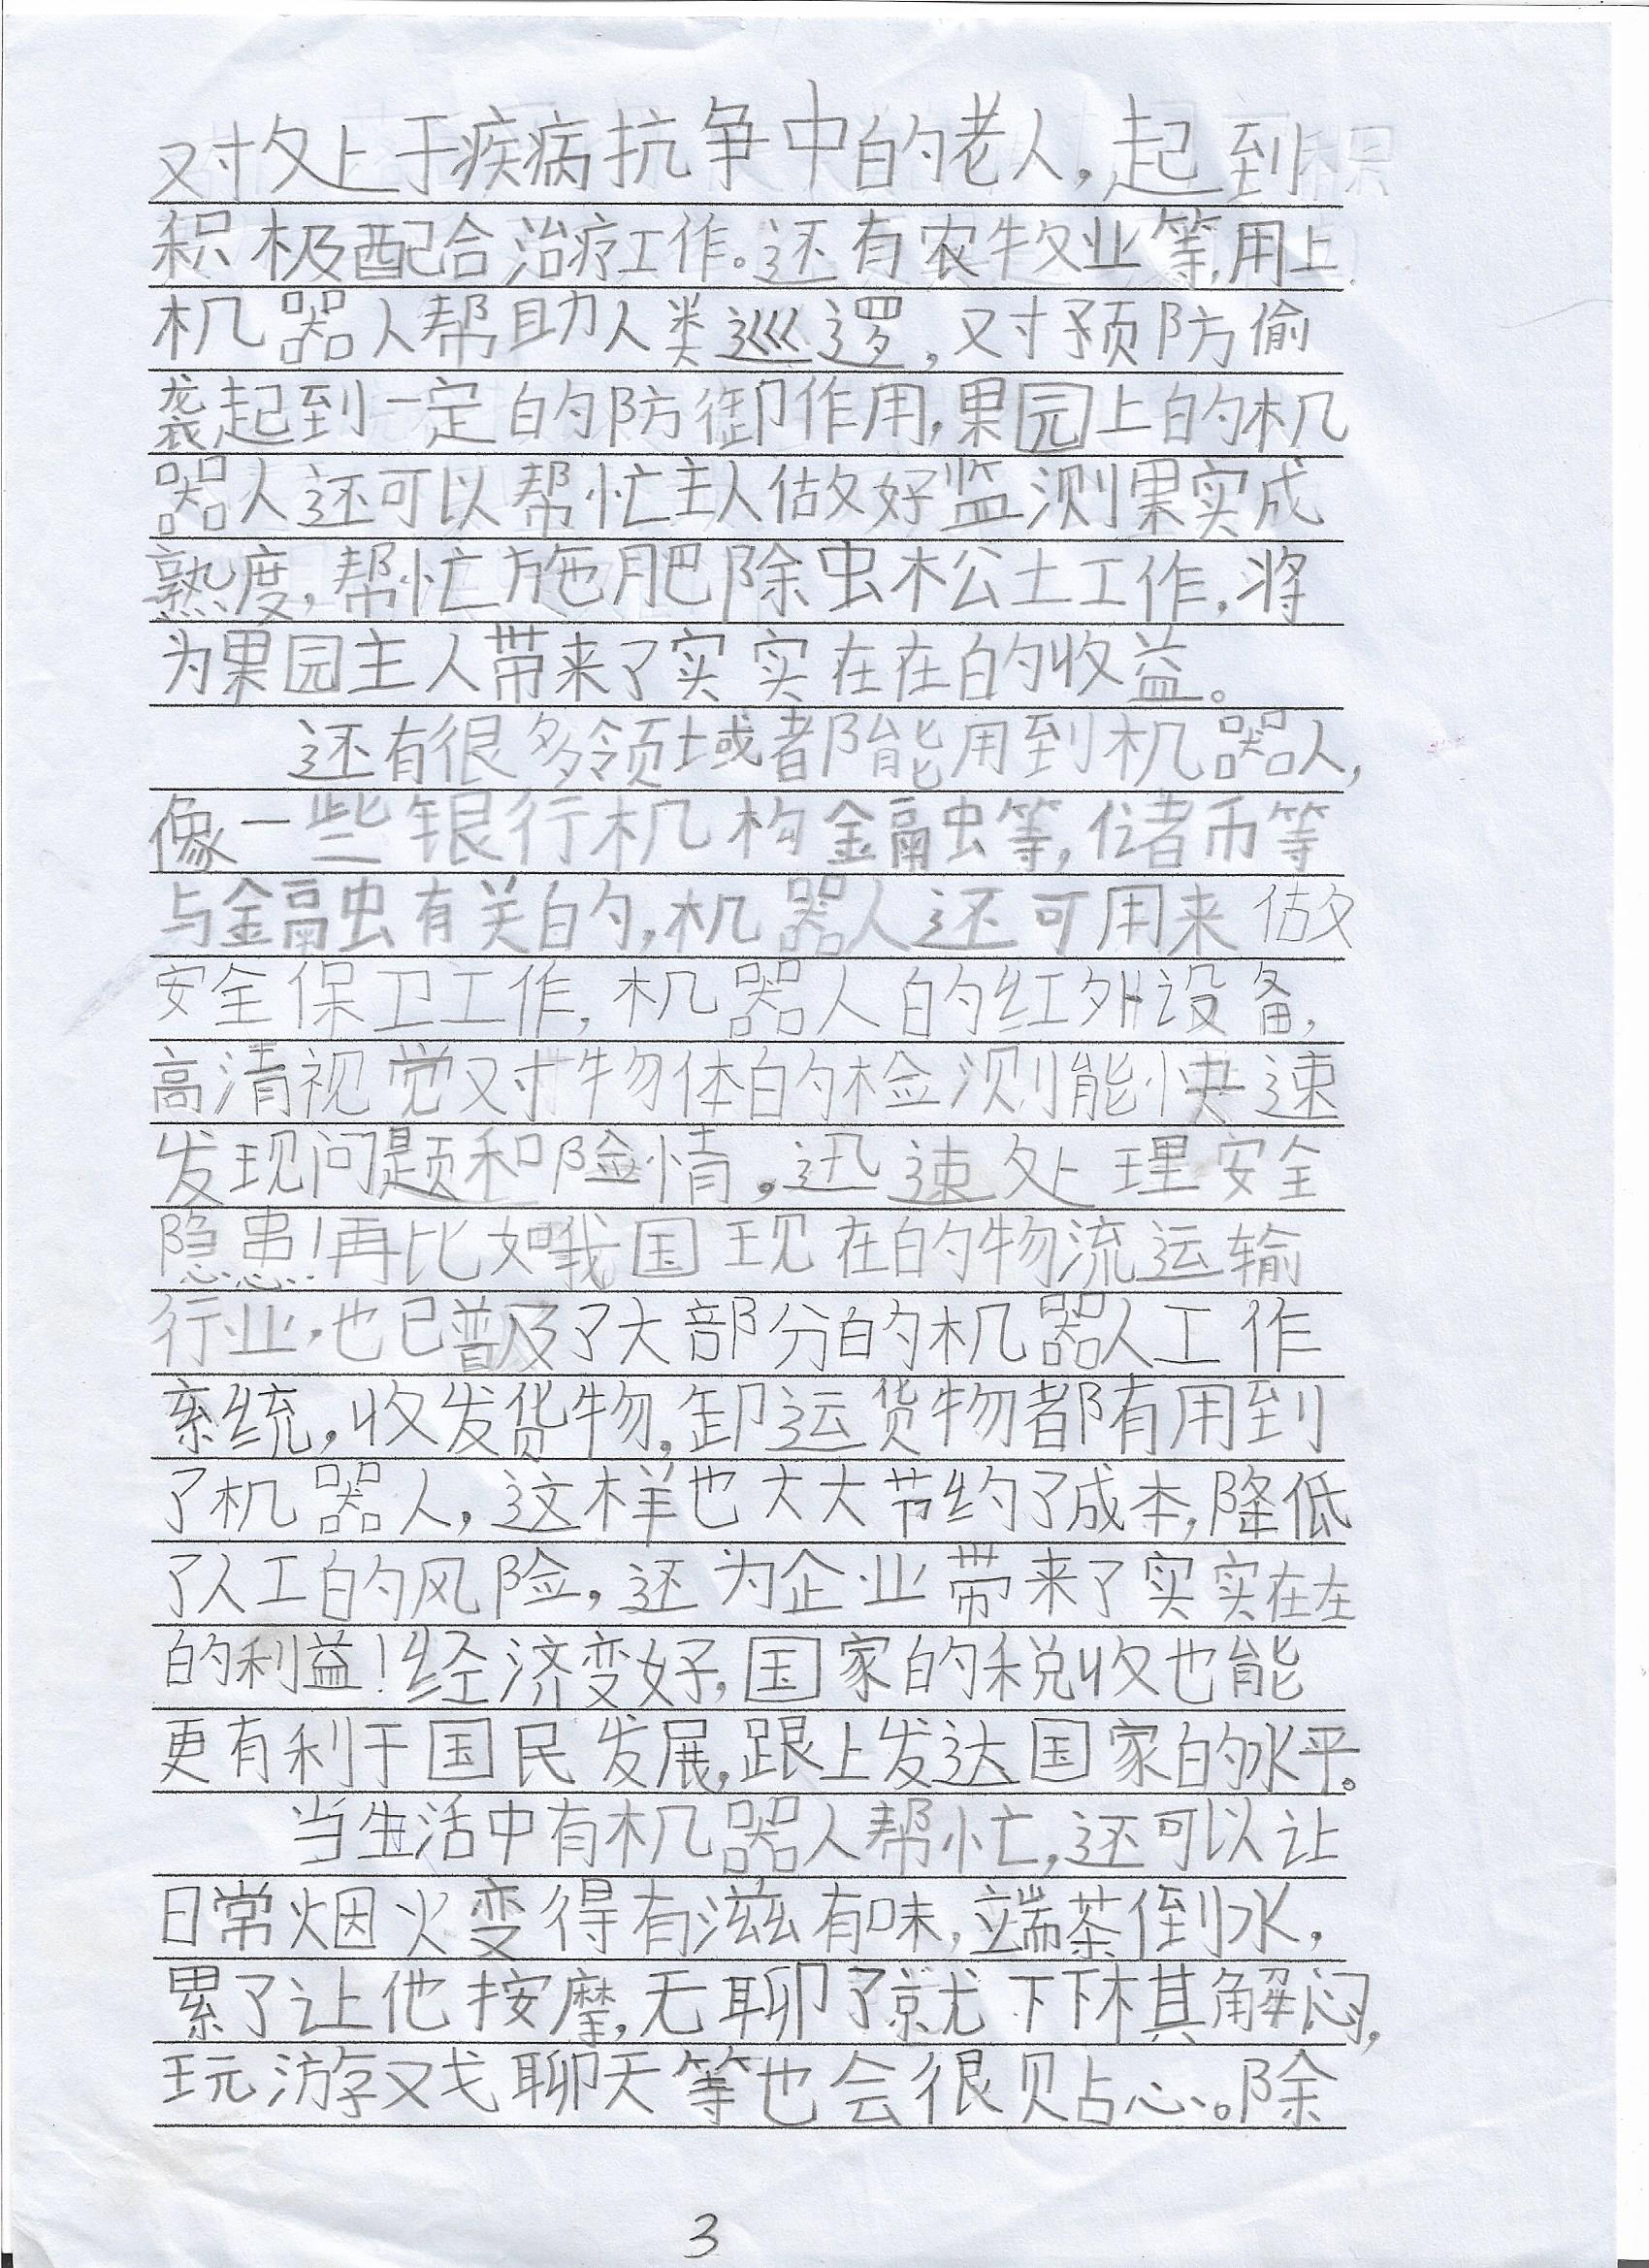 对处于疾病抗争中的老人，起到
积极配合治疗工作。还有农牧业等，用上
机器人帮助人类巡逻，对预防偷
袭起到一定的防御作用，果园上的机
器人还可以帮忙主人做好监测果实成
熟度，帮忙施肥除虫松土工作，将
为果园主人带来了实实在在的收益。
还有很多领域都能用到机器人，
像一些银行机构金融等，储币等
与金融有关的，机器人还可用来做
安全保卫工作，机器人的红外设备，
高清视觉对物体的检测能快速
发现问题和险情。迅速处理安全
隐患！再比如我国现在的物流运输
行业，也已普及了大部分的机器人工作
系统，收发货物，卸运货物都有用到
了机器人，这样也大大节约了成本，降低
了人工的风险，还为企业带来了实实在在
的利益！经济变好，国家的税收也能
更有利于国民发展，跟上发达国家的水平。
当生活中有机器人帮忙，还可以让
日常烟火变得有滋有味，端茶倒水，
累了让他按摩，无聊了就下下棋解闷，
玩游戏聊天等也会很贴心。除
3